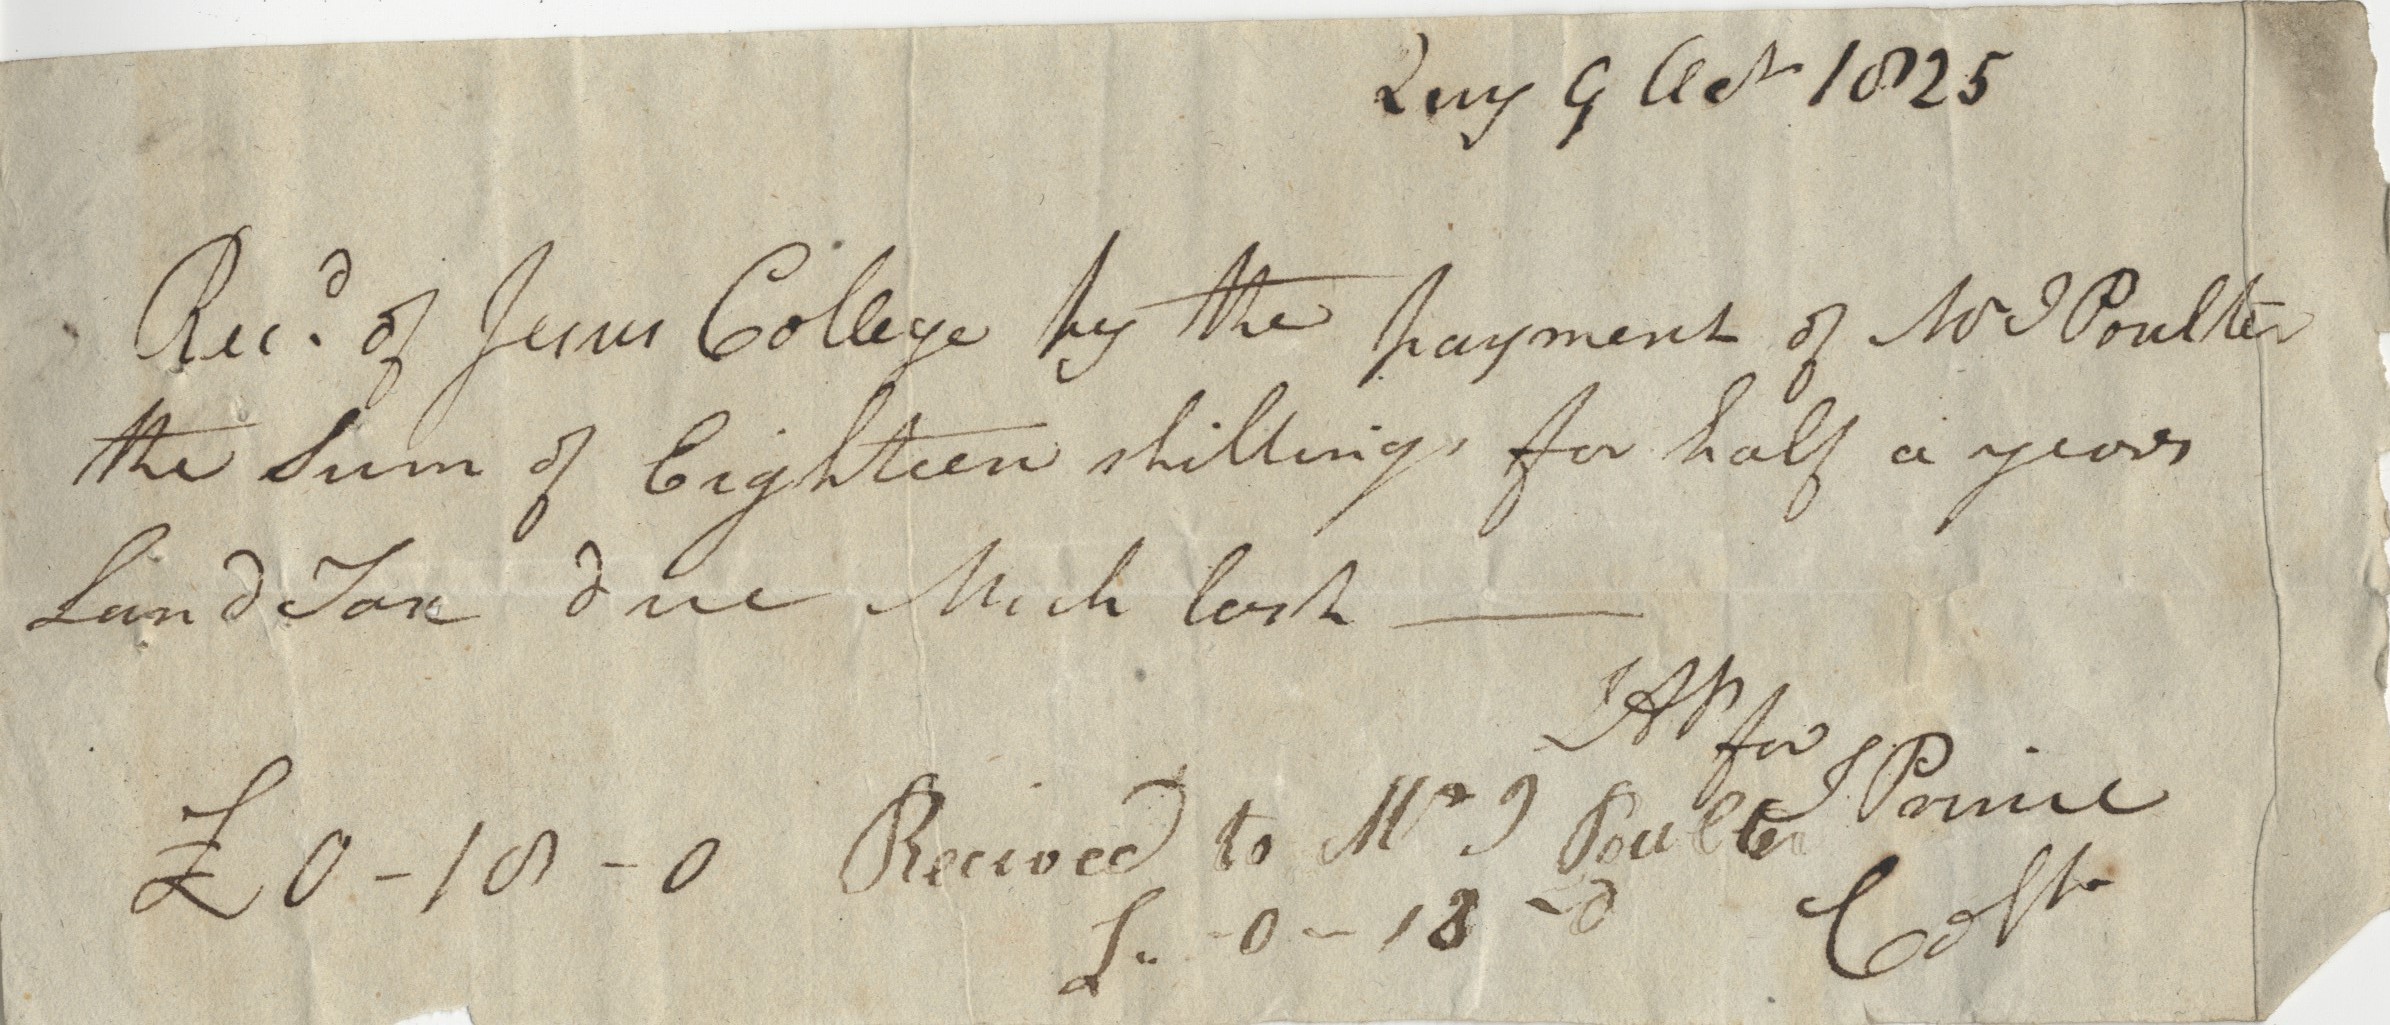 Quy 9 Oct 1825
Rec.d of Jesus College by the payment of Mr J Poulter
the Sum of Eighteen shillings for half a years
Land Tax due Mich last
JAP for
J Prince
£ 0 - 18 - 0 Recived to Mr J Poulter
£.. - 0 - 18 - 0 Collr